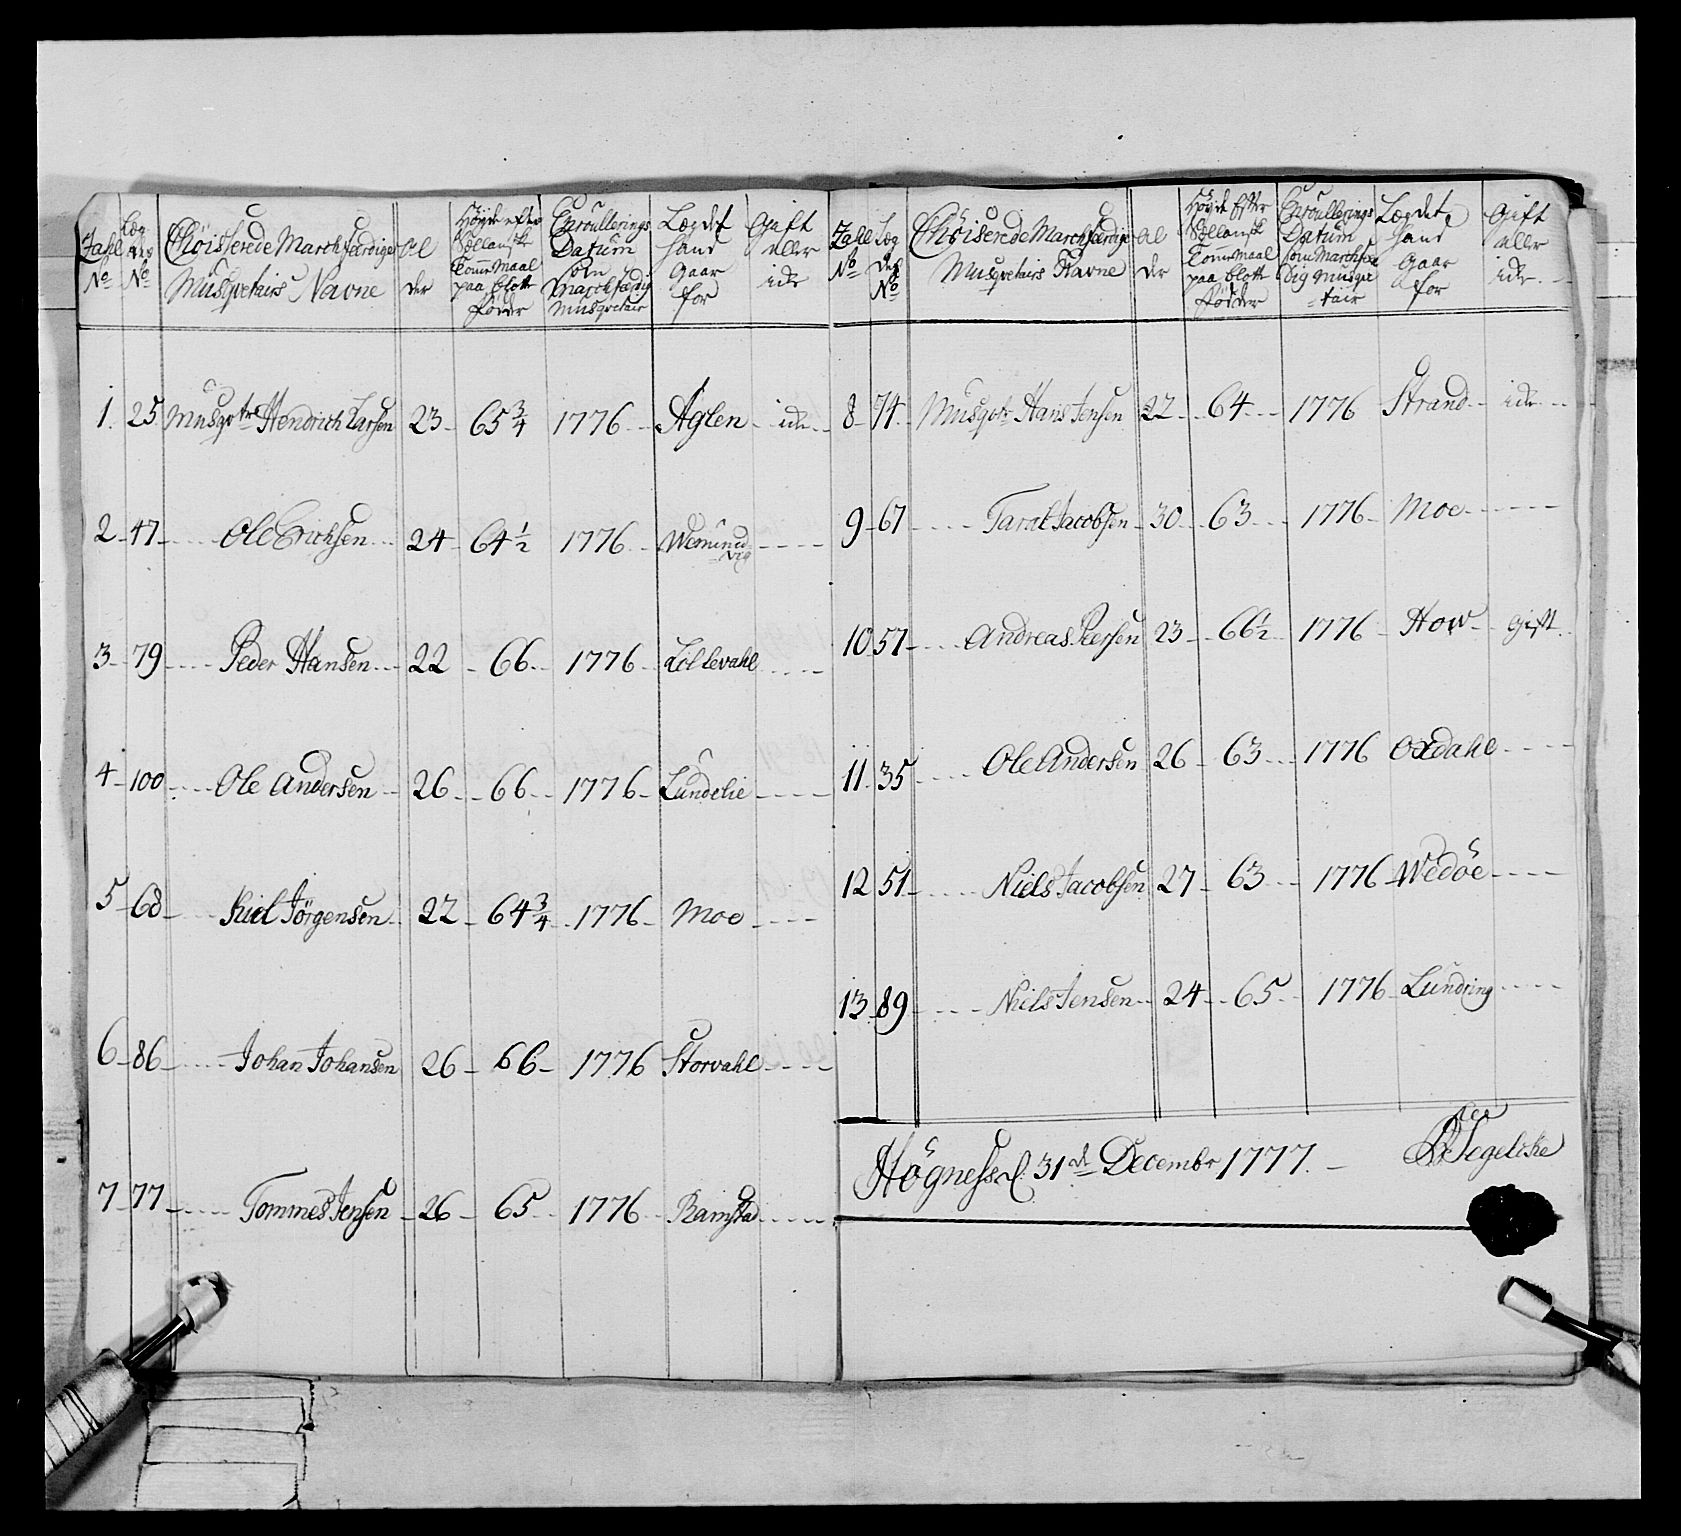 Zahl No
Læg des No
Chöisserede Marchfærdige Musqvetairs Navne
Al der
Höyde efter Sællansk Tomme Maal paa blotte födder
Enroullerings Datum som Marchfærdig Musqvetair
Lægdet hand gaar for
Gift eller icke
1. 25 Musqvtr Hendrich Larsen 23 65 3/4 1776 Aglen icke
2 47 Ole Erichsen 24 64 1/2 1776
3 79 Peder Hansen 22 66 1776 Lollevahl
4 100 Ole Andersen 26 66 1776 Lundelie
5 68 Kiel Jörgensen 22 64 3/4 1776 Moe
6 86 Johan Johansen 26 66 1776 Storvahl
7 77 Tommes Jensen 26 65 1776 Ramstad
Zahl No
Læg des No
Chöiserede Marchfærdige Musqvetairs Navne
Al der
Höyde Efter Sællansk Tomme Maal paa blotte födder
Enroullerings Datum som Marchfær dig Musqve tair
Lægdet hand gaar for
Gift eller icke
8 74 Musqvtr Hans Jensen 22 64 1776 Strand icke
9 67 Taral Jacobsen 30 63 1776 Moe
10 57 Andreas Peersen 23 66 1/2 1776 How gift
11 35 Ole Andersen 26 63 1776 Oxdahl
12 51 Niels Jacobsen 27 63 1776 Wedöe
13 89 Niels Jensen 24 65 1776 Lundring
Högness d. 31de Decembr 1777.